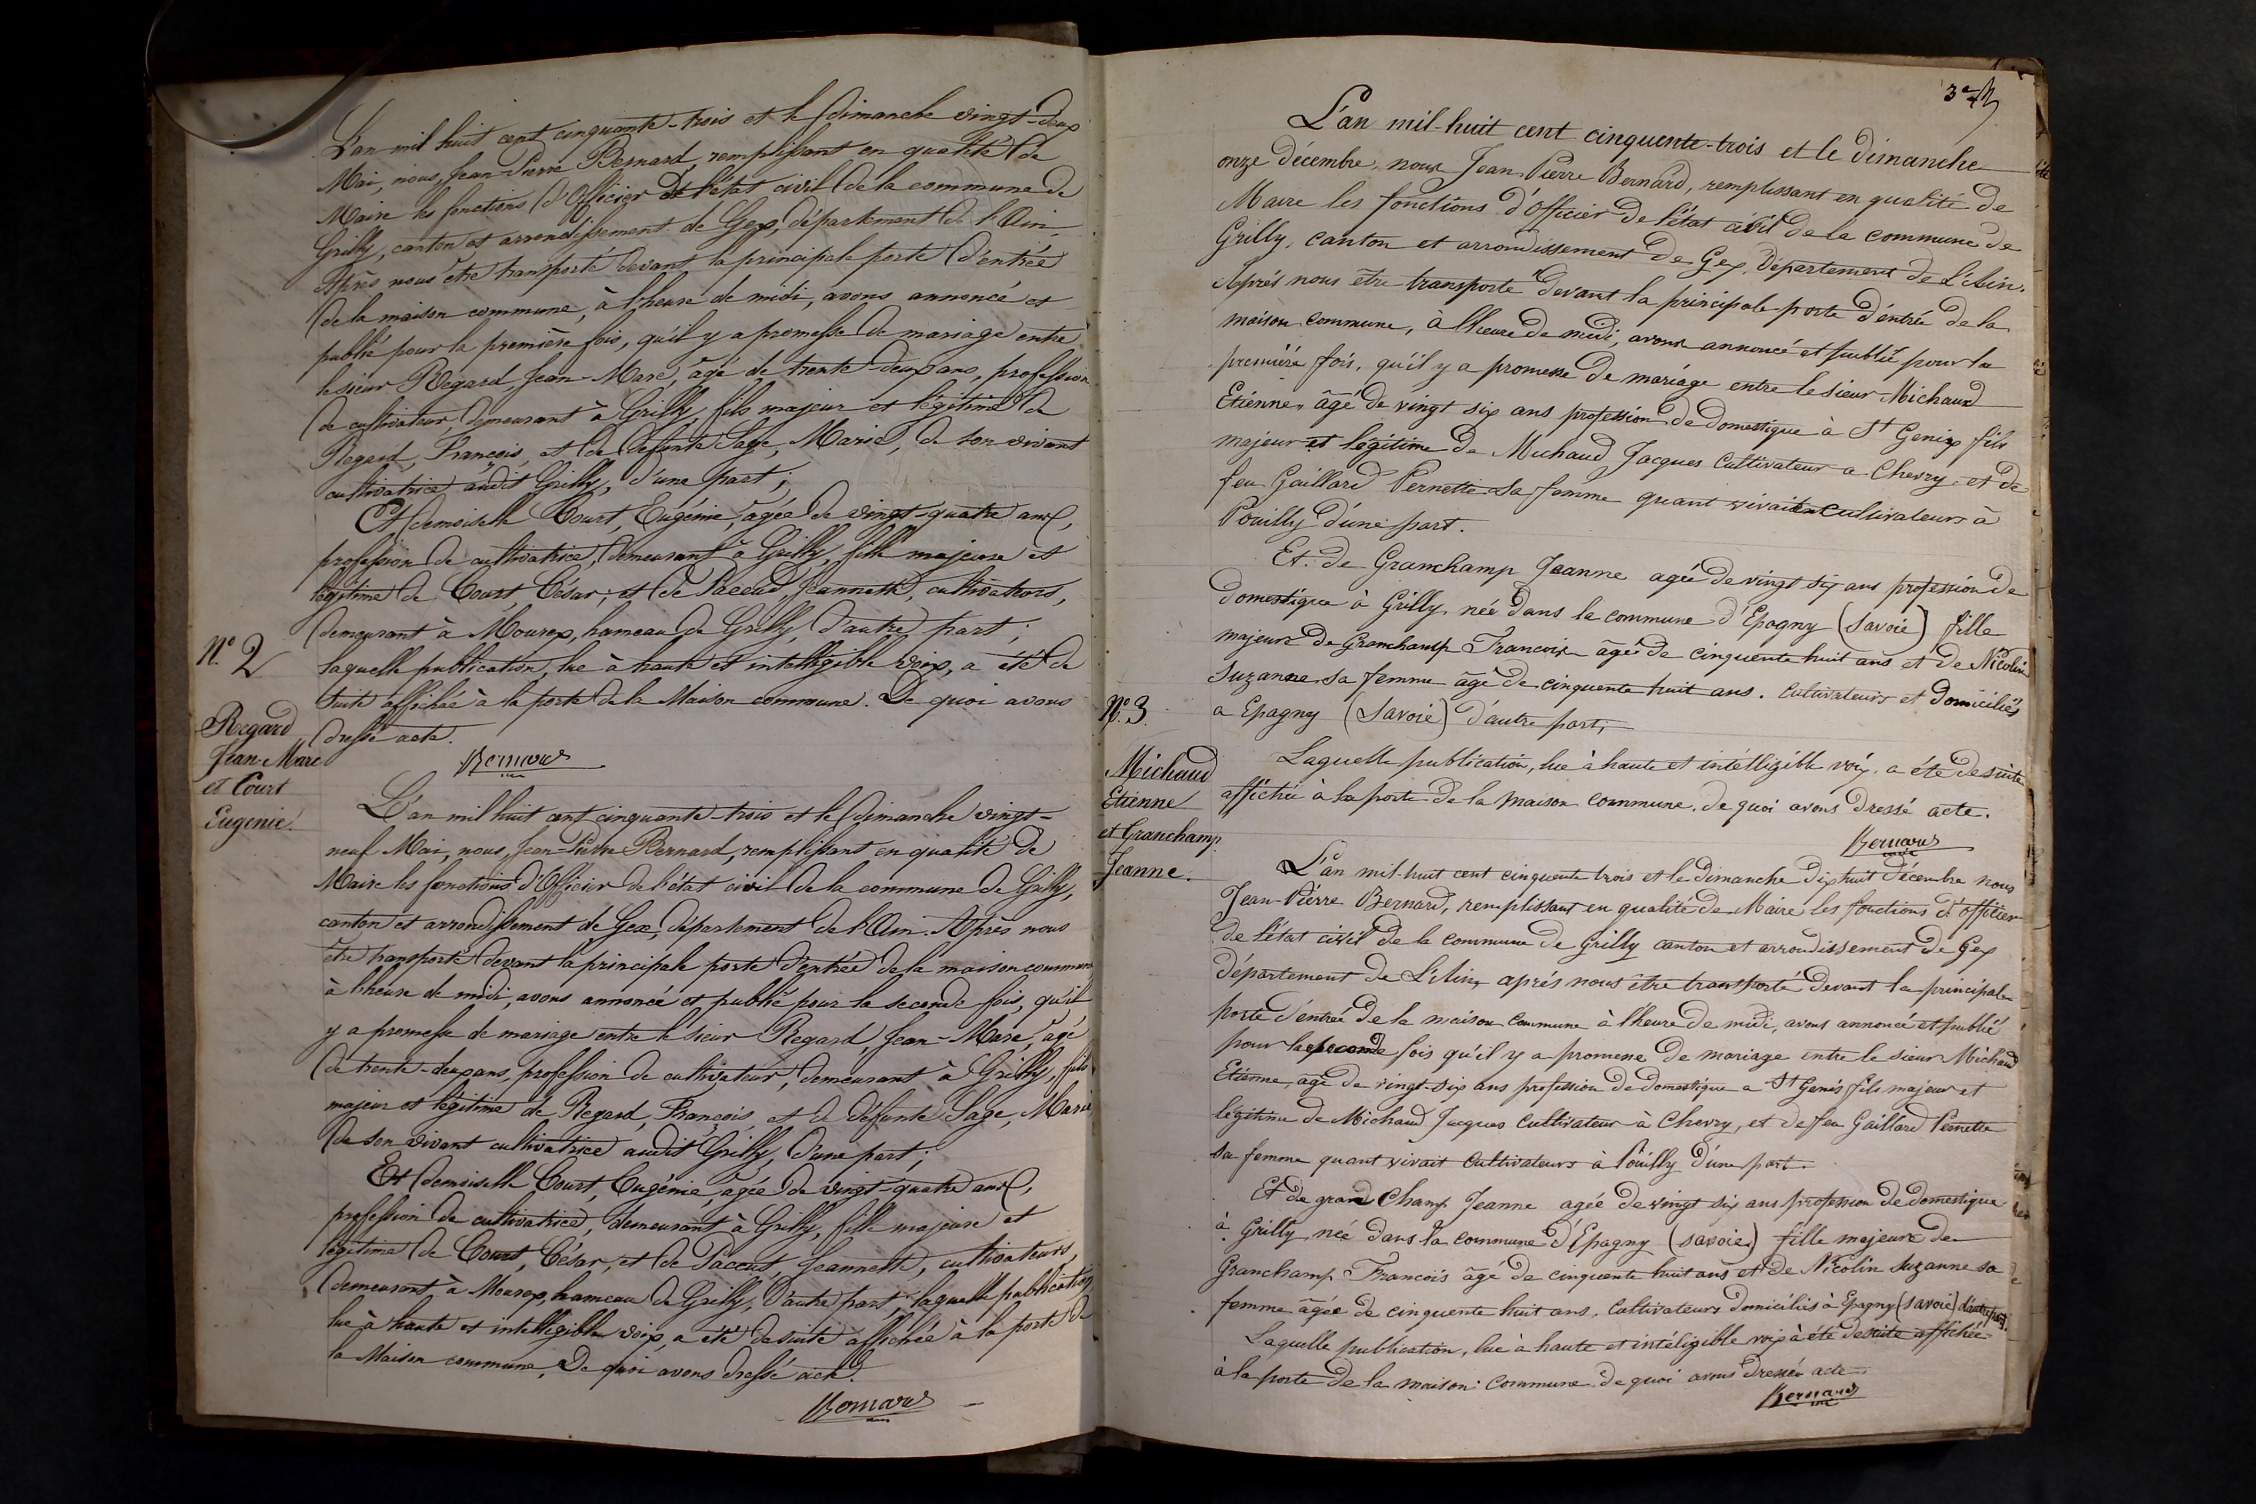 L'an mil huit cent cinquante-trois et le dimanche vingt-deux
Mai, nous, Jean-Pierre Bernard, remplissant en qualité de
Maire les fonctions d'Officier de l'état civil de la commune de
Grilly, canton et arrondissement de Gex, département de l'Ain.
Après nous être transporté devant la principale porte d'entrée
de la maison commune, à l'heure de midi, avons annoncé et
publié pour la première fois, qu'il y a promesse de mariage entre
le sieur Regard, Jean-Marc, âgé de trente-deux ans, profession
de cultivateur, demeurant à Grilly, fils majeur et légitime de
Regard, François, et de défunte Sage, Marie, de son vivant
cultivatrice audit Grilly, d'une part;
Et demoiselle Court, Eugénie, âgée de vingt-quatre ans,
profession de cultivatrice, demeurant à Grilly, fille majeure et
légitime de Court, César, et de Jeannette, cultivateurs,
demeurant à Mourex, hameau de Grilly, d'autre part;
laquelle publication, lue à haute et intelligible voix, a été de
suite affichée à la porte de la Maison commune. De quoi avons
dressé acte.
Bernard
N° 2
Regard
Jean-Marc
et Court
Eugénie.
L'an mil huit cent cinquante-trois et le dimanche vingt-
neuf Mai, nous, Jean-Pierre Bernard, remplissant en qualité de
Maire les fonctions d'Officier de l'état civil de la commune de Grilly,
canton et arrondissement de Gex, département de l'Ain. Après nous
être transporté devant la principale porte d'entrée de la maison commune
à l'heure de midi, avons annoncé et publié pour la seconde fois, qu'il
y a promesse de mariage entre le sieur Regard, Jean-Marc, âgé
de trente-deux ans, profession de cultivateur, demeurant à Grilly, fils
majeur et légitime de Regard, François, et de défunte Sage, Marie
de son vivant cultivatrice audit Grilly, d'une part;
Et demoiselle Court, Eugénie, âgée de vingt-quatre ans,
profession de cultivatrice, demeurant à Grilly, fille majeure et
légitime de Court, César, et de Paccut, Jeannette, cultivateurs,
demeurant à Mourex, hameau de Grilly, d'autre part, laquelle publication,
lue à haute et intelligible voix, a été de suite affichée à la porte de
la Maison commune. De quoi avons dressé acte.
Bernard
L'an mil-huit cent cinquente-trois et le dimanche
onze décembre, nous Jean Pierre Bernard, remplissant en qualité de
Maire les fonctions d'Officier de l'état civil de la commune de
Grilly, canton et arrondissement de Gex, département de L'Ain.
Aprés nous être transporté devant la principale porte d'éntrée de la
maison commune, à l'heure de midi, avons annoncé et publié pour la
première fois, qu'il y a promesse de mariage entre le sieur Michaud
Etiénne, âgé de vingt six ans profession de domestique à St Genix fils
majeur et légitime de Michaud Jacques cultivateur a Chevry, et de
feu Gaillard Pernette sa femme quant vivait cultivateurs à
Pouilly d'une part.
Et. de Granchamp Jeanne agée de vingt six ans profession de
domestique à Grilly, née dans la commune d'Epagny (Savoie) fille
majeure de Granchamp Francois âgé de cinquente huit ans et de Nicolin
Suzanne sa femme âgé de cinquente huit ans. cultivateurs et domiciliés
a Epagny (Savoie) d'autre part,
Laquelle publication, lue à haute et intélligible voix, a été de suite
affichée à la porte de la maison commune. de quoi avons dressé acte.
Bernard
N° 3.
Michaud
Etienne
et Granchamp
Jeanne.
L'an mil-huit cent cinquente trois et le dimanche dix huit décembre nous
Jean-Piérre Bernard, remplissant en qualité de Maire les fonctions d'officier
de l'état civil de la commune de Grilly canton et arrondissement de Gex
département de L'Ain, aprés nous être transporté devant la principale
porte d'éntrée de la maison commune à l'heure de midi, avons annoncé et publié
pour la seconde fois qu'il y a promesse de mariage entre le sieur Michaud
Etienne, âgé de vingt-six ans profession de domestique a St Genis fils majeur et
légitime de Michaud Jacques cultivateur à Chevry, et de feu Gaillard Pernette
sa femme quant vivait cultivateurs à Pouilly d'une part.
Et de grand Champ Jeanne agée de vingt six ans profession de domestique
à Grilly née dans la commune d'Epagny (savoie) fille majeure de
Granchamp Francois âgé de cinquente huit ans et de Nicolin Suzanne sa
femme âgée de cinquente huit ans, cultivateurs domiciliés à Epagny (savoie) d'autre part.
Laquelle publication, lue à haute et intéligible voix à été de suite affichée
à la porte de la maison commune. de quoi avons dressée acte.
Bernard